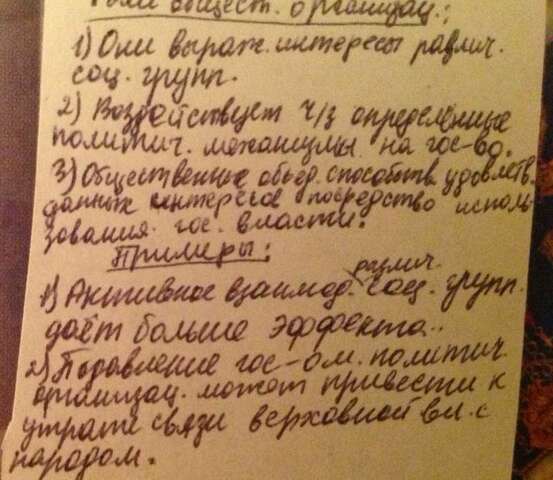 Роли общест. организац.:
1) Они выраж. интересы различ.
соц. групп.
2) Воздействует ч/з определённые
политич. механизмы на гос-во.
3) Общественные объед. способств. удовлетв.
данных интересов посредство исполь-
зования гос. власти.
Примеры:
различ.
1) Активное взаимод. соц. групп.
даёт больше эффекта.
2) Подавление гос-ом политич.
организац. может привести к
утрате связи верховной вл. с
народом.